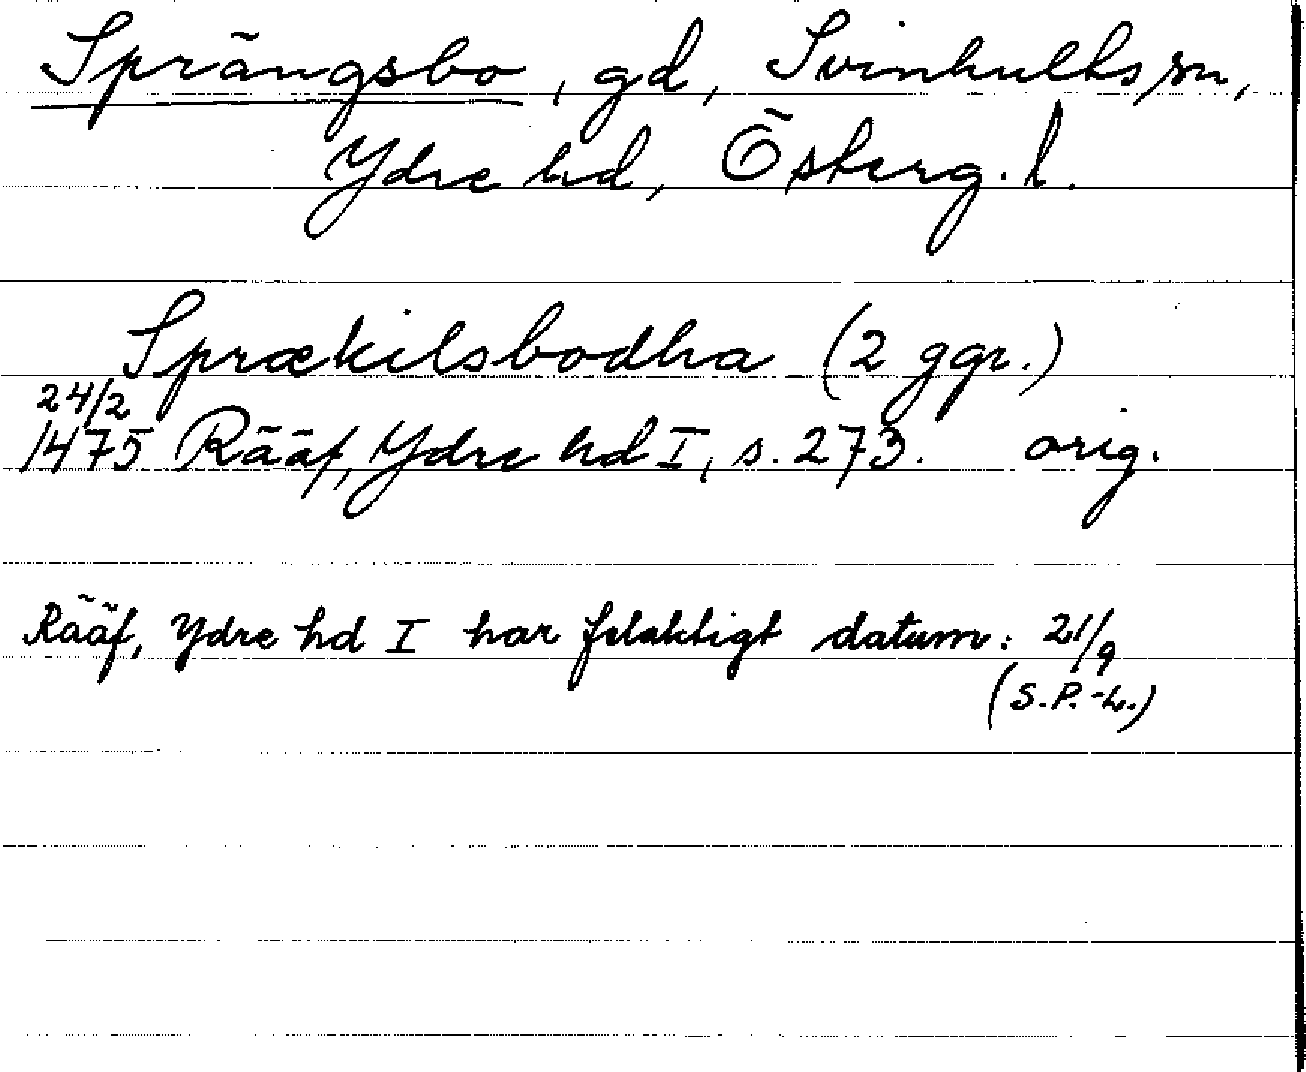 Sprängsbo, gd, Svinhults sn,
Ydre hd, Österg. l.
Sprækilsbodha (2 ggr.)
24/2
1475 Rääf, Ydre hd I, s. 273. orig.
Rääf, Ydre hd I har felaktigt datum: 21/9
(S.P.-L.)